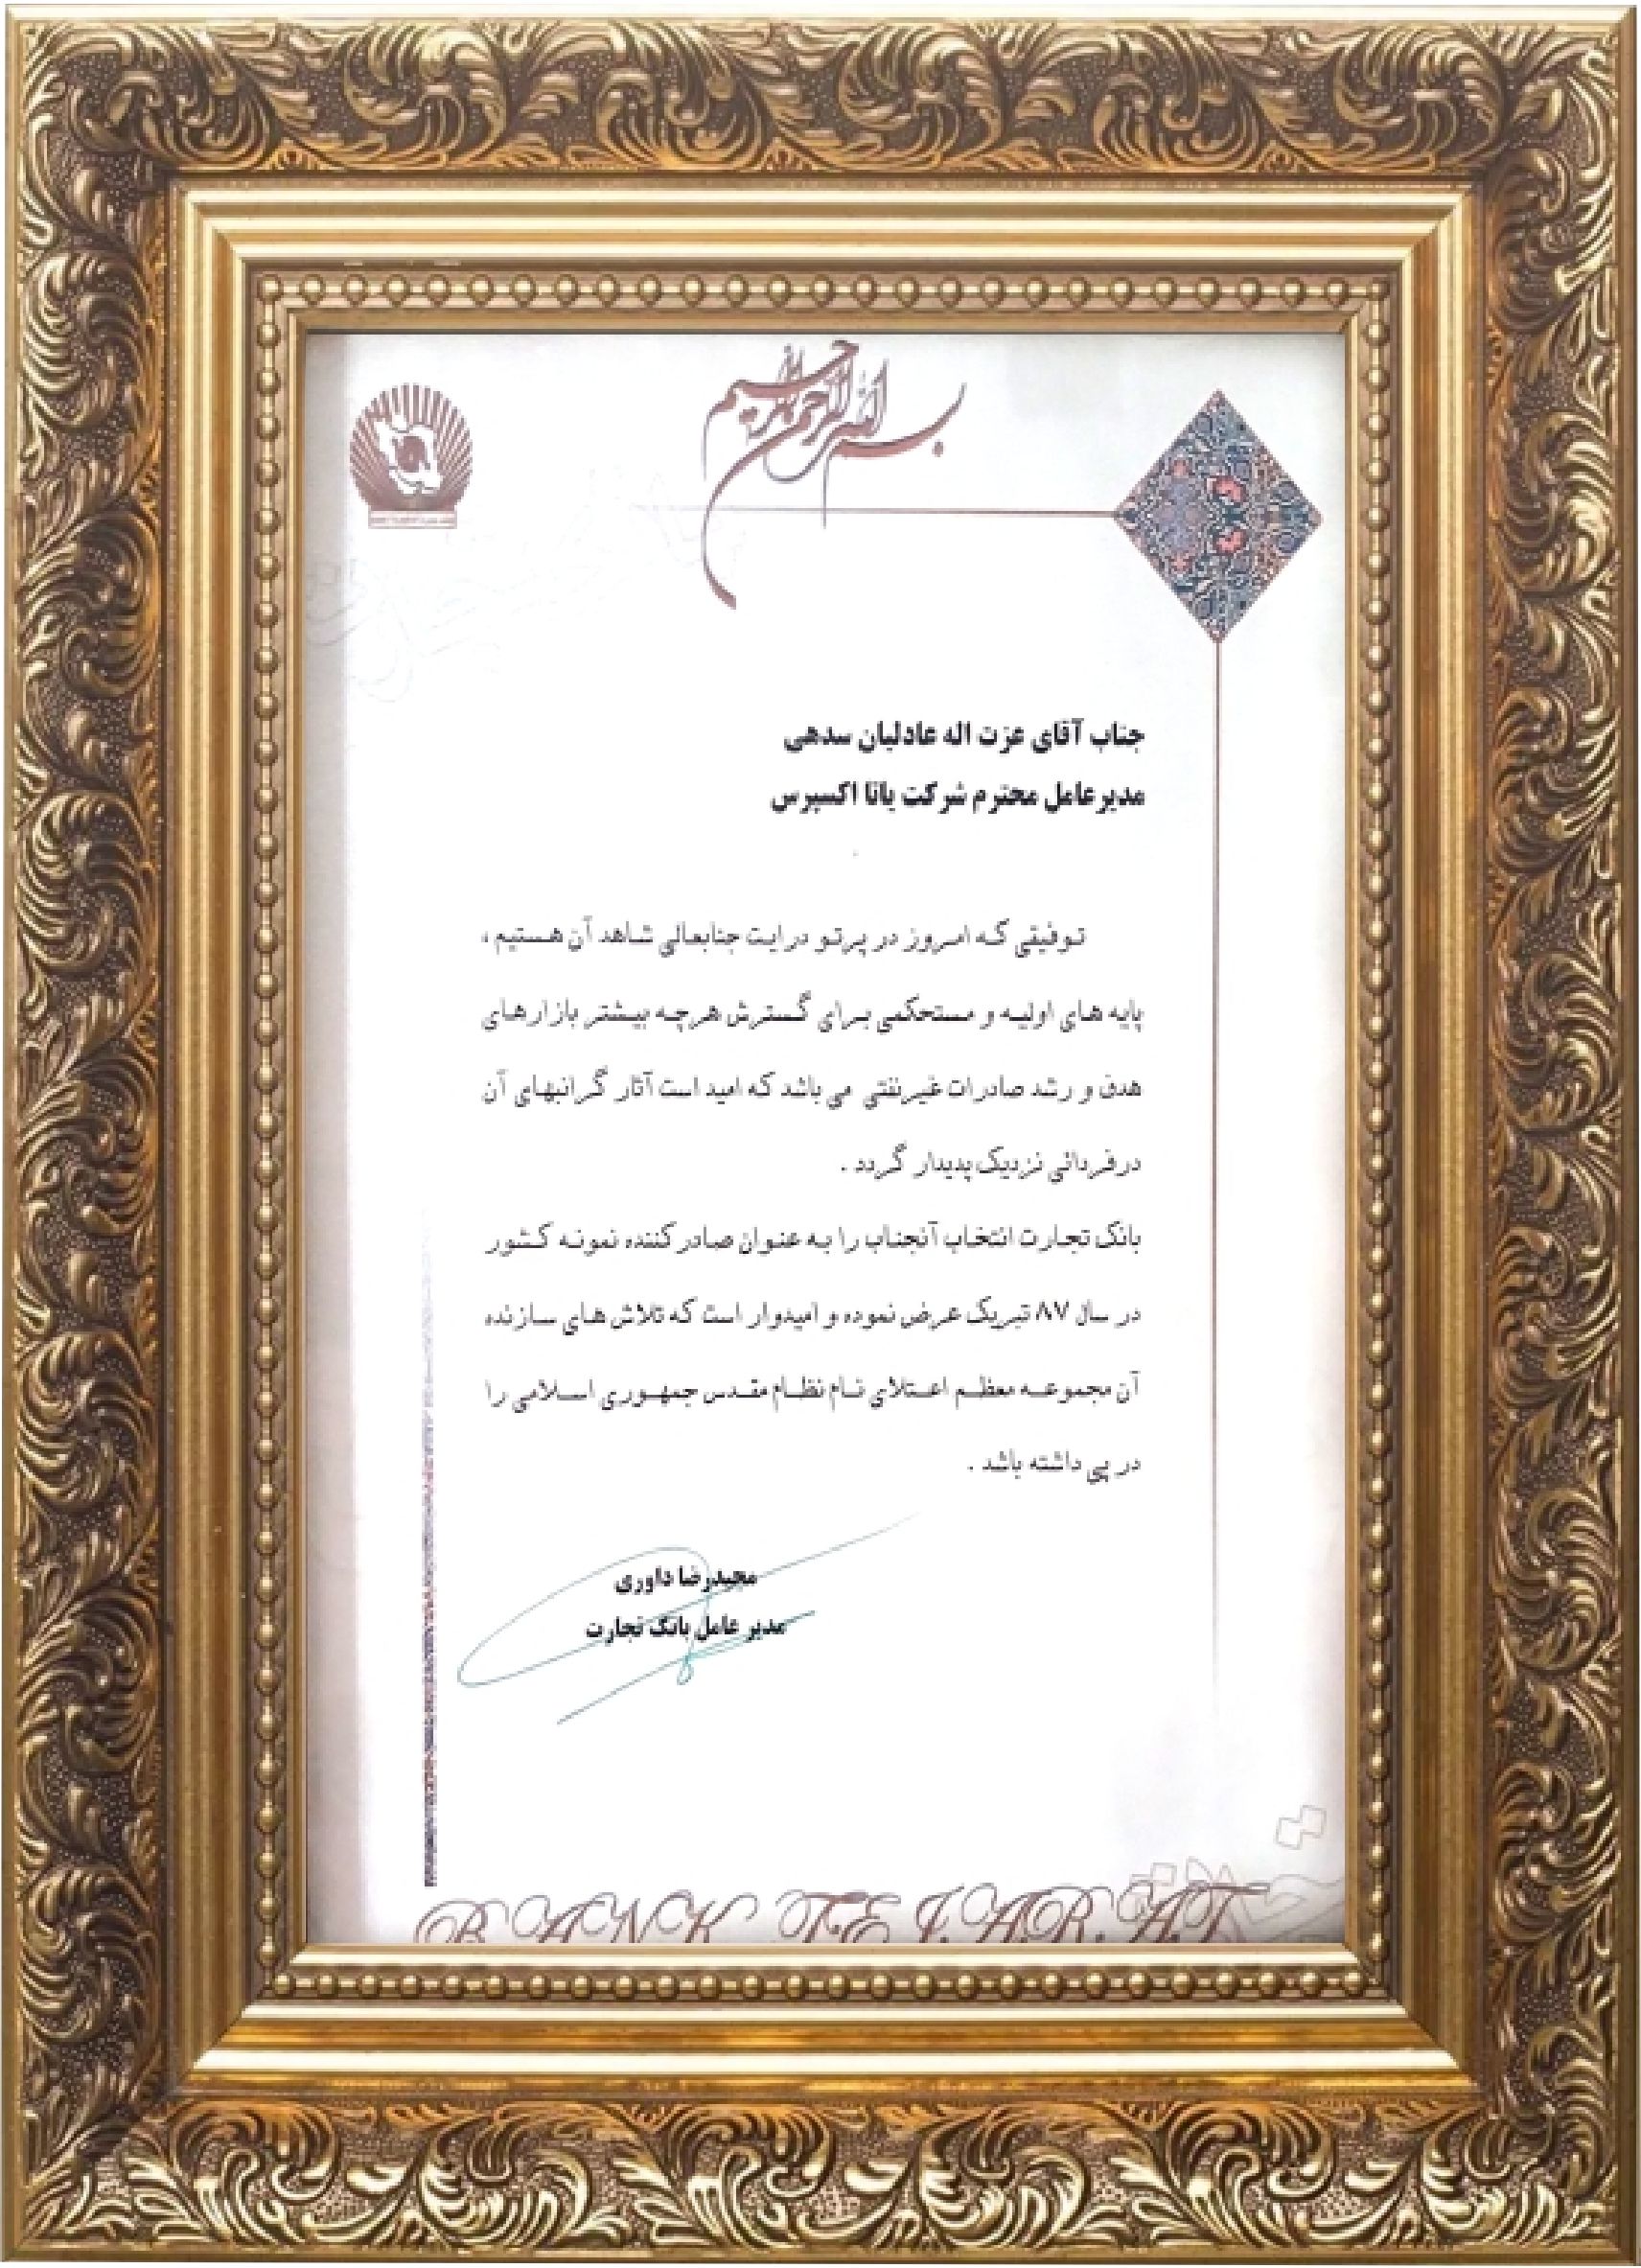 بسم الله الرحمن الرحیم
جناب آقای عزت اله عادلیان سدهی
مدیرعامل محترم شرکت یانا اکسپرس
توفیقی که امروز در پرتو درایت جنابعالی شاهد آن هستیم ،
پایه های اولیه و مستحکمی برای گسترش هرچه بیشتر بازارهای
هدف و رشد صادرات غیرنفتی می باشد که امید است آثار گرانبهای آن
درفردائی نزدیک پدیدار گردد .
بانک تجارت انتخاب آنجناب را به عنوان صادرکننده نمونه کشور
در سال ۸۷ تبریک عرض نموده و امیدوار است که تلاش های سازنده
آن مجموعه معظم اعتلای نام نظام مقدس جمهوری اسلامی را
در پی داشته باشد .
مجیدرضا داوری
مدیر عامل بانک تجارت
BANK TEJARAT